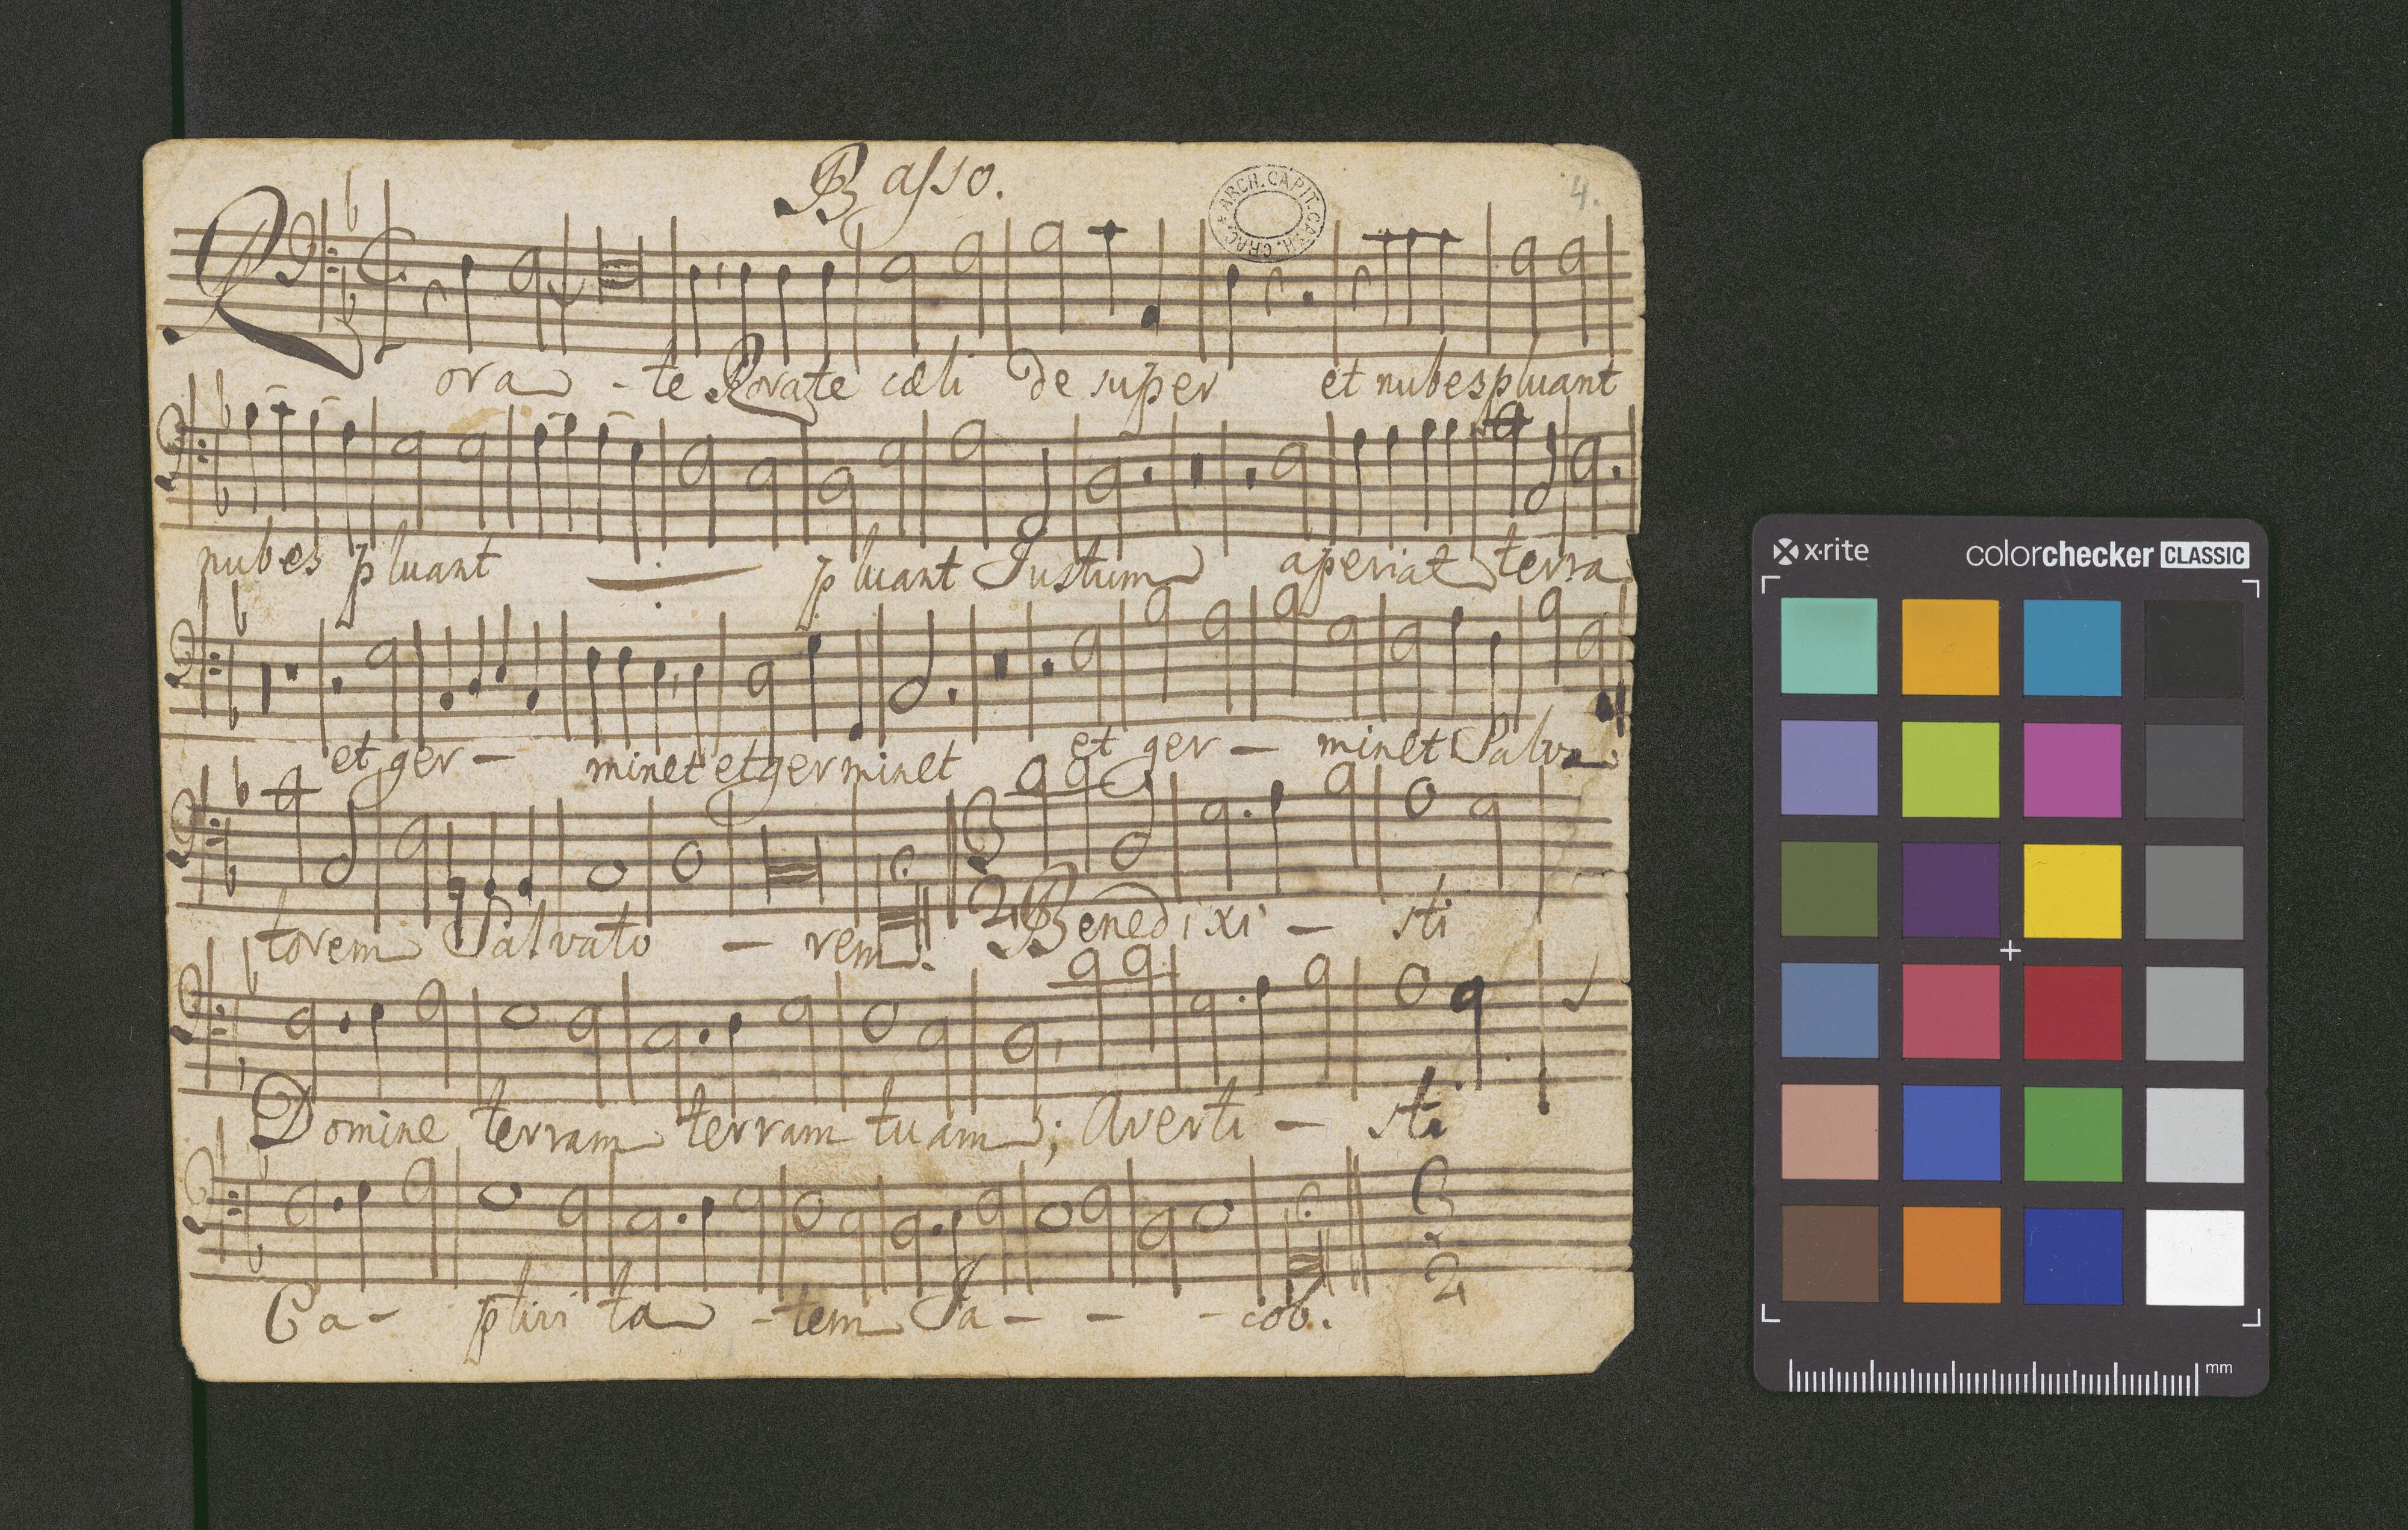 Basso.
4.
ARCH. CAPIT. CATH. CRAC.
Rorate Rorate cæli de super et nubes pluant
nubes pluant pluant Justum aperiat terra
et ger - minet et germinet et ger - minet Salva
torem Salvato - rem. Benedixi - sti
Domine terram terram tuam; Averti - sti
Ca - ptivi ta - tem Ja - - - cob.
x·rite colorchecker CLASSIC
mm